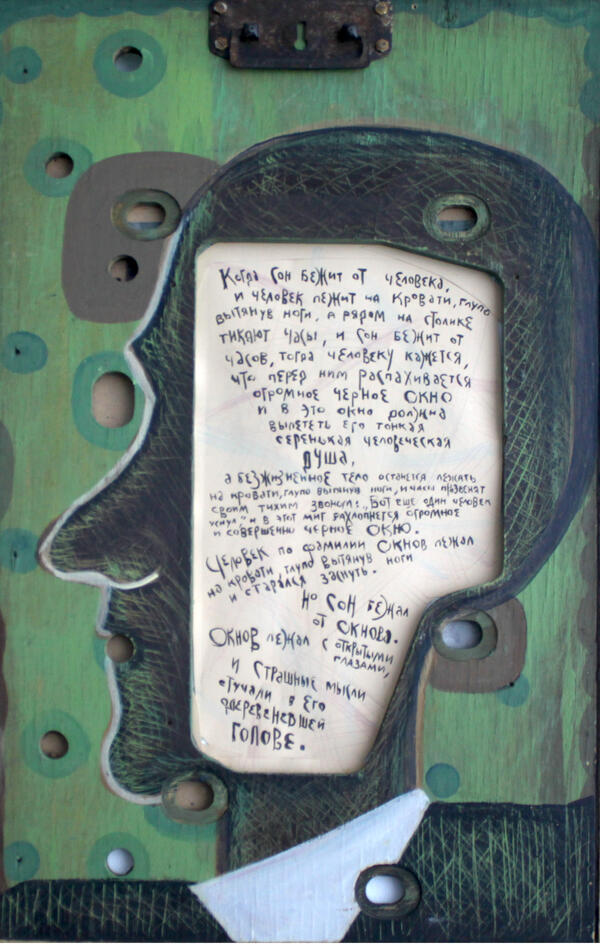 Когда сон бежит от человека,
и человек лежит на кровати, глупо
вытянув ноги, а рядом на столике
тикают часы, и сон бежит от
часов, тогда человеку кажется,
что перед ним распахивается
огромное черное окно
и в это окно должна
вылететь его тонкая
серенькая человеческая
душа,
а безжизненное тело останется лежать
на кровати, глупо вытянув ноги, и часы прозвенят
своим тихим звоном: „Вот еще один человек
уснул" и в этот миг захлопнется огромное
и совершенно черное окно.
Человек по фамилии Окнов лежал
на кровати, глупо вытянув ноги
и старался заснуть.
Но сон бежал
от Окнова.
Окнов лежал с открытыми
глазами,
и страшные мысли
стучали в его
одеревеневшей
голове.